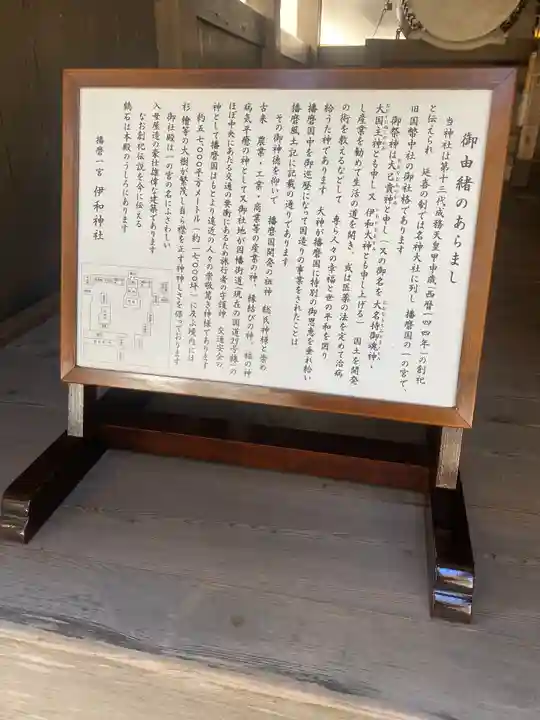 御由緒のあらまし
当神社は第十三代成務天皇甲申歳(西暦一四四年)の創祀
と伝えられ 延喜の制では名神大社に列し 播磨国の一の宮で、
旧国幣中社の御社格であります
御祭神は大己貴神と申し(又の御名を大名持御魂神・
大国主神とも申し又 伊和大神とも申し上げる) 国土を開発
し産業を勧めて生活の道を開き、或は医薬の法を定めて治病
の術を教えるなどして 専ら人々の幸福と世の平和を図り
給うた神であります 大神が播磨国に特別の御恩恵を垂れ給い
播磨国中を御巡歴になって国造りの事業をされたことは
播磨風土記に記載の通りであります
その御神徳を仰いで 播磨国開発の祖神 総氏神様と崇め
古来 農業・工業・商業等の産業の神、縁結びの神、福の神
病気平癒の神として又御社地が因幡街道(現在の国道29号線)の
ほぼ中央にあたる交通の要衝にあるため旅行者の守護神 交通安全の
神として播磨国はもとより遠近の人々の崇敬篤き神様であります
約五七〇〇〇平方メートル(約一七〇〇〇坪)に及ぶ境内には
杉 檜等の大樹が繁茂し自ら襟を正す神々しさを保っております
御社殿は一の宮の名にふさわしい
入母屋造の豪壮雄偉な建築であります
なお創祀伝説を今に伝える
鶴石は本殿のうしろにあります
播磨一宮 伊和神社